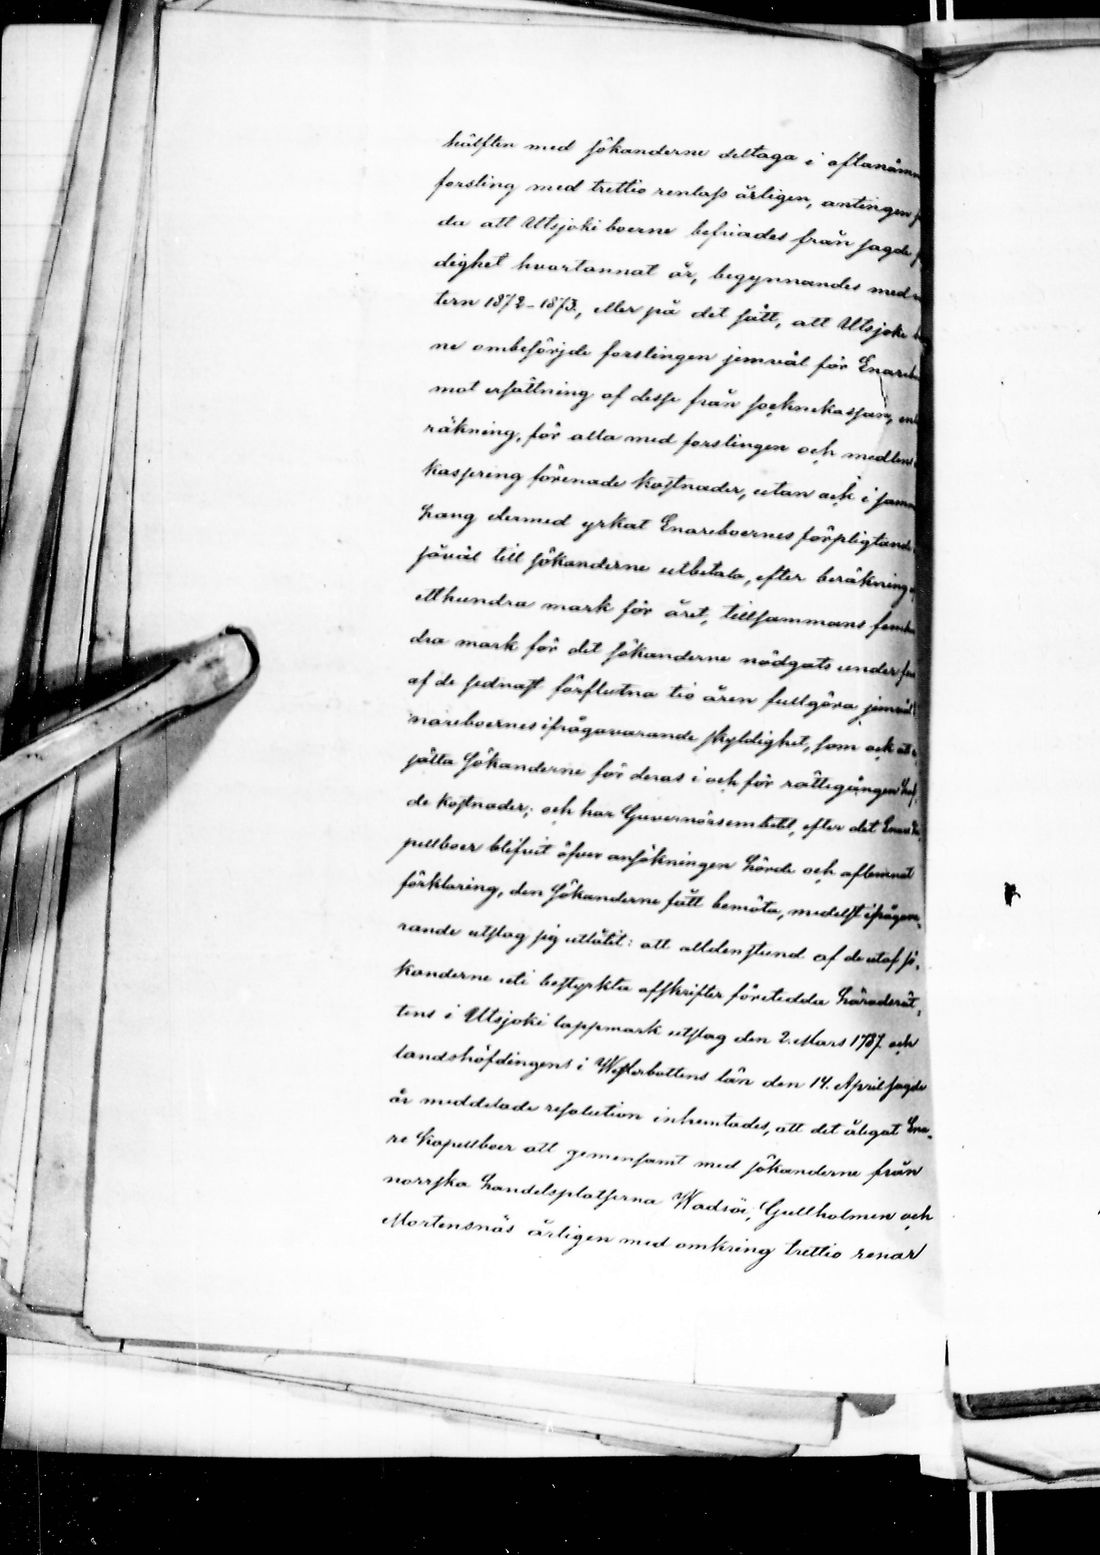 hälften med sökanderne deltaga i oftanämn
forsling med trettio renlass årligen, antingen
da att Utsjoki boerne befriades från sagde
dighet hvartannat år, begynnandes med
tern 1872-1873, eller på det sätt, att Utsjoki
ne ombesörjde forslingen jemväl för Enare
mot ersättning af desse från socknekassan,
räkning, för alla med forslingen och medlens
kassering förenade kostnader, utan ock i samm
hang dermed yrkat Enareboernes förpligtande
såväl till sökanderne utbetala, efter beräkning
etthundra mark för året, tillsammans femhun
dra mark för det sökanderne nödgats under
af de sednast förflutna tio åren fullgöra jemväl
nareboernes ifrågavarande skyldighet, som ock
sätta sökanderne för deras i och för rättegången
de kostnader; och har Guvernörsembetet, efter det Enare
pellboer blifvit öfver ansökningen hörde och aflemnat
förklaring, den sökanderne fått bemöta, medelst ifrågava„
rande utslag sig utlåtit: att alldenstund af de utaf sö„
kanderne uti bestyrkta afskrifter företedda häradsrät„
tens i Utsjoki lappmark utslag den 2. Mars 1787 och
landshöfdingens i Westerbottens län den 14. April sagde
år meddelade resolution inhemtades, att det ålegat Ena„
re Kapellboer att gemensamt med sökanderne från
norrska handelsplatserna Wadsöe, Gullholmen och
Mortensnäs årligen med omkring trettio renar